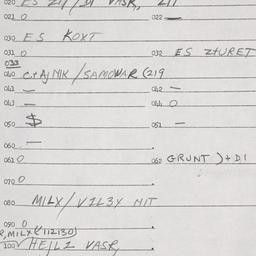 020 ES ZII / DI VASR,
021 0 022 —
030 ES KOXT
031 0 032 ES Z+URET
033
040 C+AJNIK / SAMOWAR (219
041 — 042 —
043 — 044 0
050 $ 051 —
060 —
061 0 062 GRUNT )+DI
070 0
080 MILX / VIL3X NIT
090 0
R,MILX(/112130)
100 HEJLI VASR,